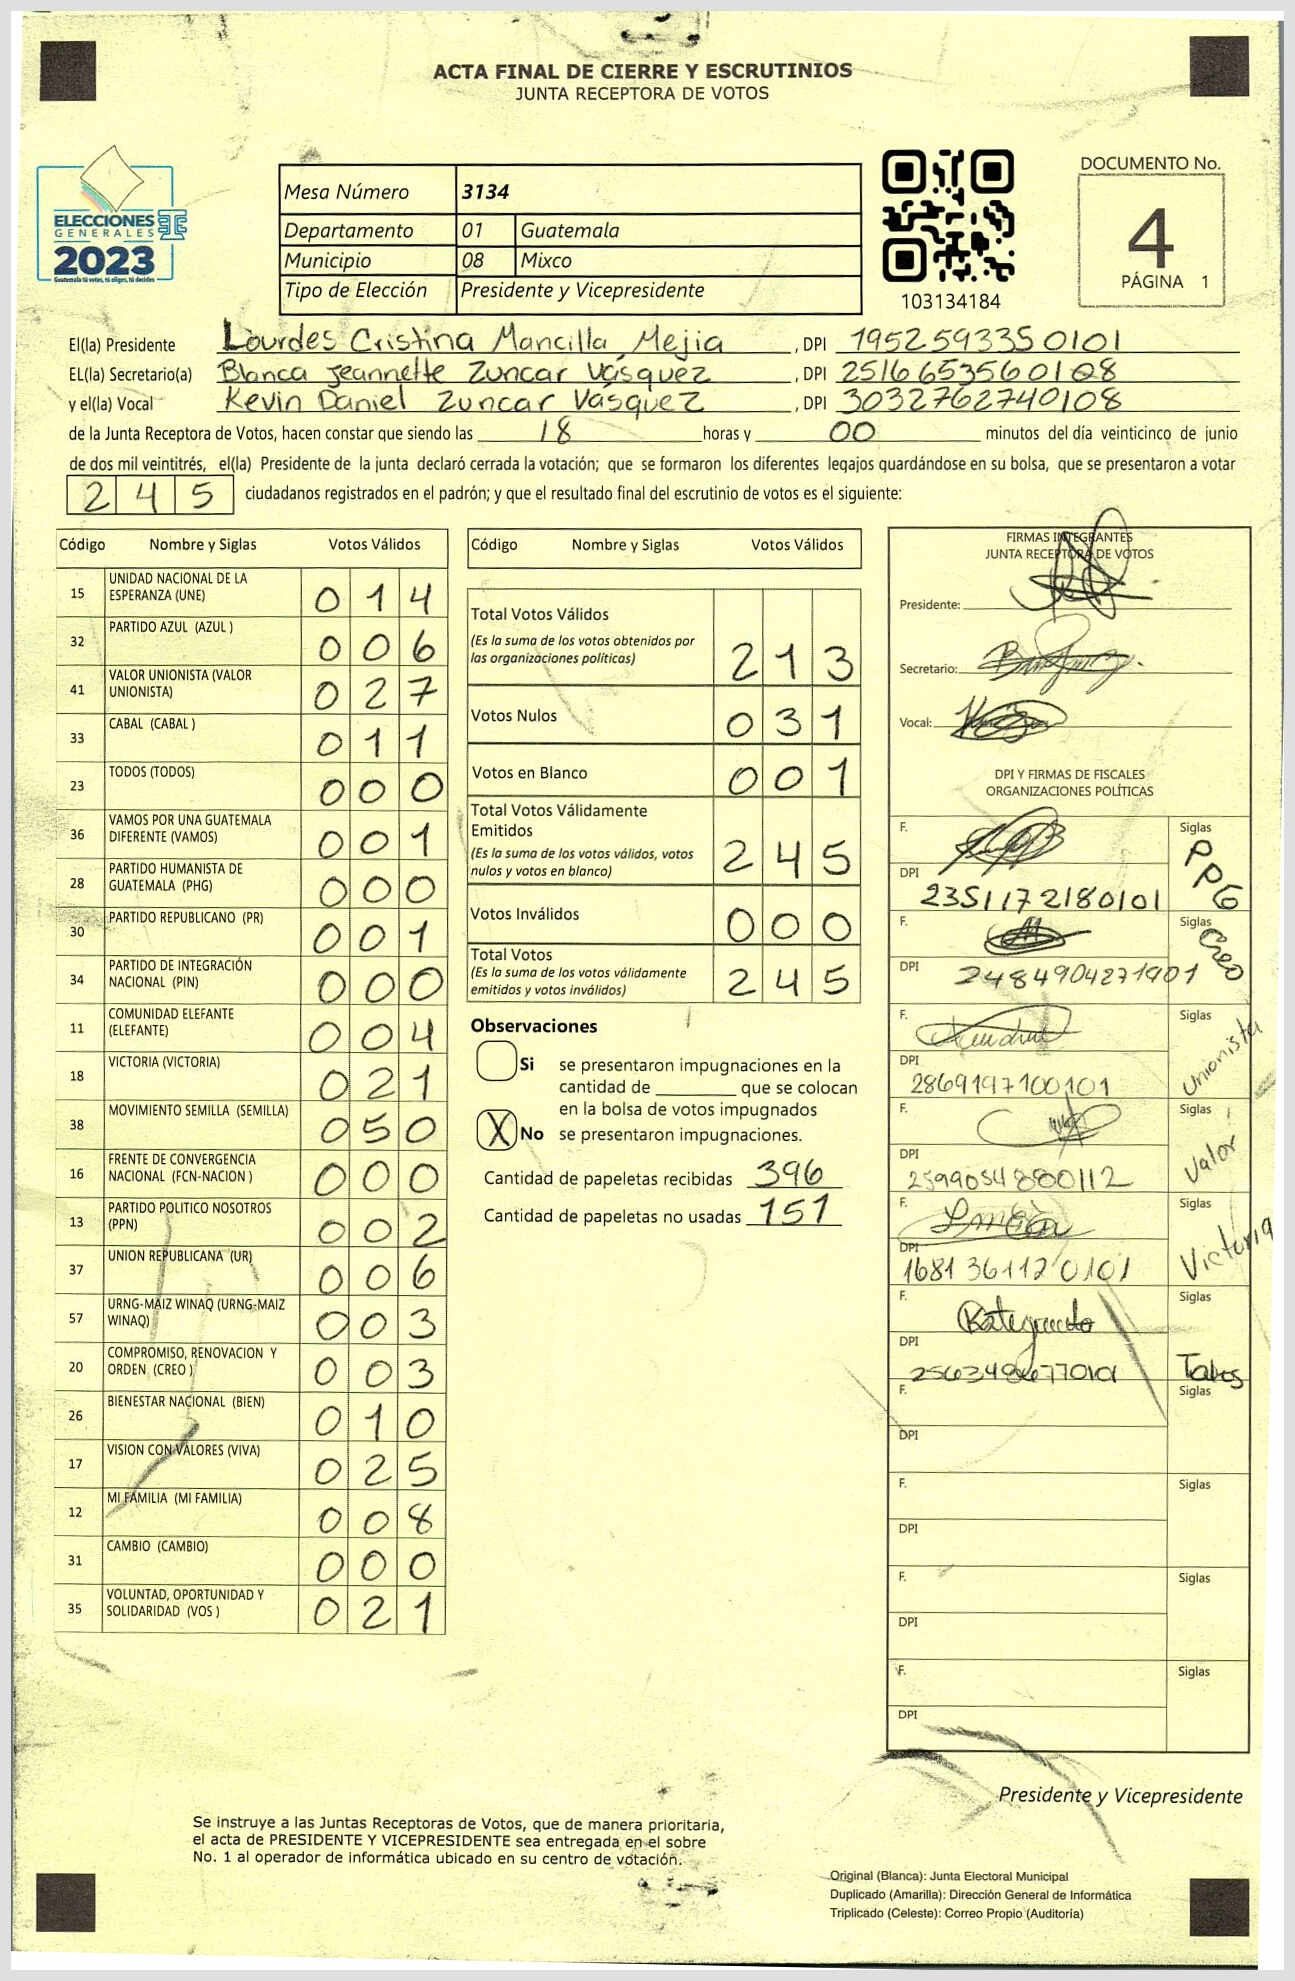 ACTA FINAL DE CIERRE Y ESCRUTINIOS
JUNTA RECEPTORA DE VOTOS
ELECCIONES
GENERALES
2023
Guatemala tú votas, tú eliges, tú decides
Mesa Número 3134
Departamento 01 Guatemala
Municipio 08 Mixco
Tipo de Elección Presidente y Vicepresidente
103134184
DOCUMENTO No.
4
PÁGINA 1
El(la) Presidente Lourdes Cristina Mancilla Mejia , DPI 1952593350101
EL(la) Secretario(a) Blanca Jeannette Zuncar Vásquez , DPI 2516653560108
y el(la) Vocal Kevin Daniel Zuncar Vásquez , DPI 3032762740108
de la Junta Receptora de Votos, hacen constar que siendo las 18 horas y 00 minutos del día veinticinco de junio
de dos mil veintitrés, el(la) Presidente de la junta declaró cerrada la votación; que se formaron los diferentes legajos guardándose en su bolsa, que se presentaron a votar
245 ciudadanos registrados en el padrón; y que el resultado final del escrutinio de votos es el siguiente:
Código Nombre y Siglas Votos Válidos
15 UNIDAD NACIONAL DE LA ESPERANZA (UNE) 014
32 PARTIDO AZUL (AZUL ) 006
41 VALOR UNIONISTA (VALOR UNIONISTA) 027
33 CABAL (CABAL ) 011
23 TODOS (TODOS) 000
36 VAMOS POR UNA GUATEMALA DIFERENTE (VAMOS) 001
28 PARTIDO HUMANISTA DE GUATEMALA (PHG) 000
30 PARTIDO REPUBLICANO (PR) 001
34 PARTIDO DE INTEGRACIÓN NACIONAL (PIN) 000
11 COMUNIDAD ELEFANTE (ELEFANTE) 004
18 VICTORIA (VICTORIA) 021
38 MOVIMIENTO SEMILLA (SEMILLA) 050
16 FRENTE DE CONVERGENCIA NACIONAL (FCN-NACION ) 000
13 PARTIDO POLITICO NOSOTROS (PPN) 002
37 UNION REPUBLICANA (UR) 006
57 URNG-MAIZ WINAQ (URNG-MAIZ WINAQ) 003
20 COMPROMISO, RENOVACION Y ORDEN (CREO ) 003
26 BIENESTAR NACIONAL (BIEN) 010
17 VISION CON VALORES (VIVA) 025
12 MI FAMILIA (MI FAMILIA) 008
31 CAMBIO (CAMBIO) 000
35 VOLUNTAD, OPORTUNIDAD Y SOLIDARIDAD (VOS ) 021
Código Nombre y Siglas Votos Válidos
Total Votos Válidos
(Es la suma de los votos obtenidos por
las organizaciones políticas) 213
Votos Nulos 031
Votos en Blanco 001
Total Votos Válidamente
Emitidos
(Es la suma de los votos válidos, votos
nulos y votos en blanco) 245
Votos Inválidos 000
Total Votos
(Es la suma de los votos válidamente
emitidos y votos inválidos) 245
Observaciones
Si se presentaron impugnaciones en la
cantidad de ________ que se colocan
en la bolsa de votos impugnados
X No se presentaron impugnaciones.
Cantidad de papeletas recibidas 396
Cantidad de papeletas no usadas 151
FIRMAS INTEGRANTES
JUNTA RECEPTORA DE VOTOS
Presidente:
Secretario:
Vocal:
DPI Y FIRMAS DE FISCALES
ORGANIZACIONES POLÍTICAS
F. Siglas PPG
DPI 2351172180101
F. Siglas Creo
DPI 2484904271901
F. Siglas Unionista
DPI 2869197100101
F. Siglas Valor
DPI 2599054880112
F. Siglas Victoria
DPI 1681361120101
F. Siglas
DPI
F. Siglas
DPI
F. Siglas
DPI
F. Siglas
DPI
F. Siglas
DPI
Presidente y Vicepresidente
Se instruye a las Juntas Receptoras de Votos, que de manera prioritaria,
el acta de PRESIDENTE Y VICEPRESIDENTE sea entregada en el sobre
No. 1 al operador de informática ubicado en su centro de votación.
Original (Blanca): Junta Electoral Municipal
Duplicado (Amarilla): Dirección General de Informática
Triplicado (Celeste): Correo Propio (Auditoría)